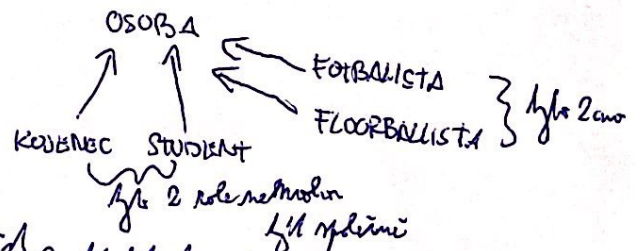 OSOBA
FOTBALISTA
FLOORBALLISTA
tyto 2 ano
KOJENEC STUDENT
tyto 2 role nemohou
být společně